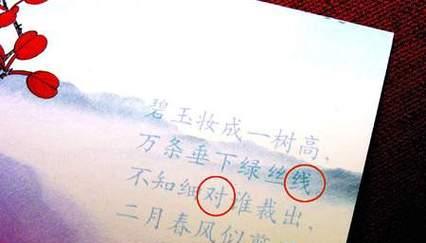 碧玉妆成一树高，
万条垂下绿丝线，
不知细对谁裁出，
二月春风似